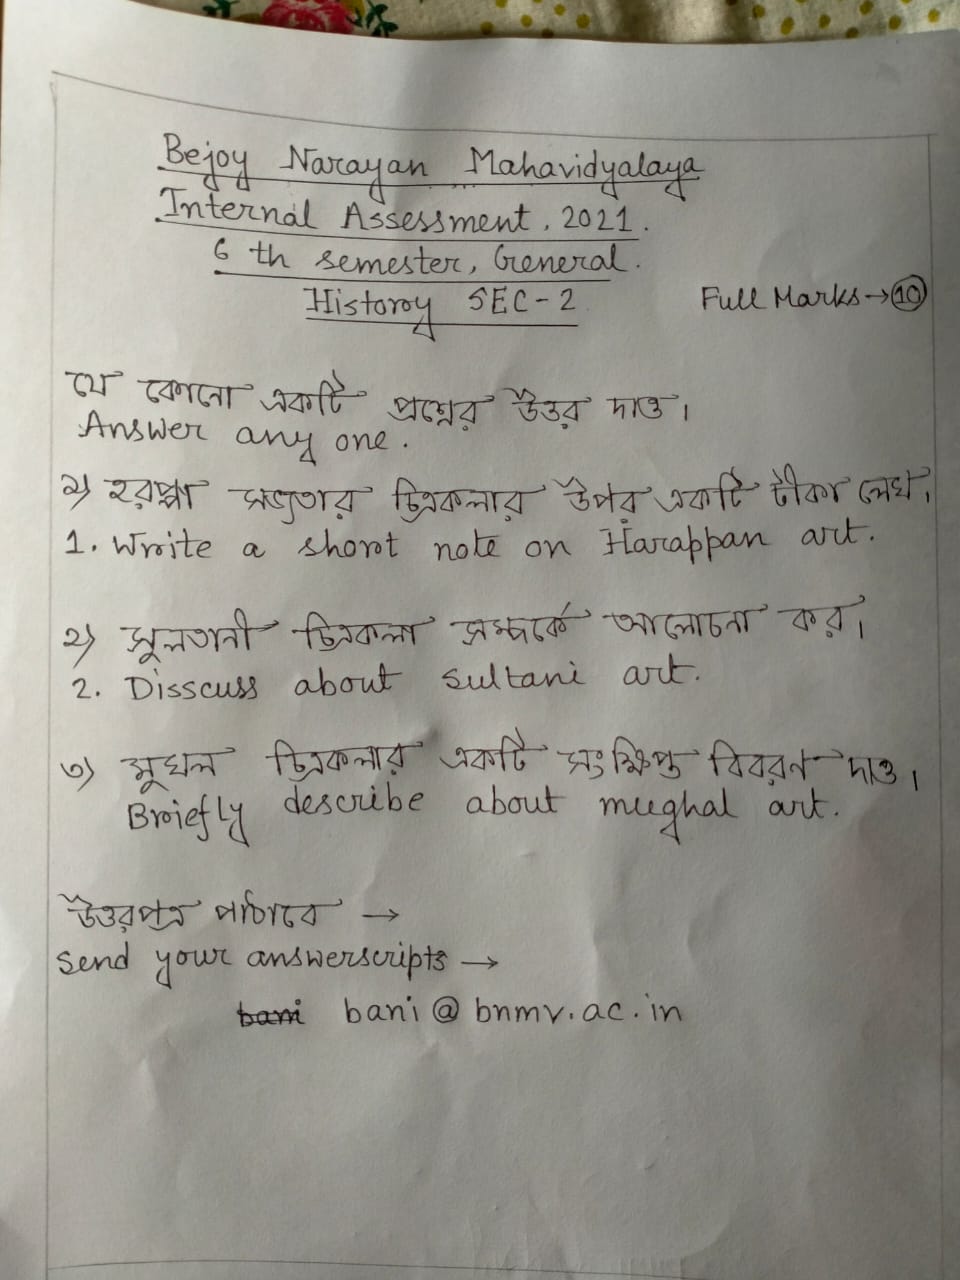 Bejoy Narayan Mahavidyalaya
Internal Assessment, 2021.
6 th semester, General.
History SEC-2
Full Marks→10
যে কোনো একটি প্রশ্নের উত্তর দাও।
Answer any one.
১) হরপ্পা সভ্যতার চিত্রকলার উপর একটি টীকা লেখ।
1. Write a short note on Harappan art.
২) সুলতানী চিত্রকলা সম্পর্কে আলোচনা কর।
2. Disscuss about Sultani art.
৩) মুঘল চিত্রকলার একটি সংক্ষিপ্ত বিবরণ দাও।
Briefly describe about mughal art.
উত্তরপত্র পাঠাবে →
Send your answerscripts →
bani bani@bnmv.ac.in